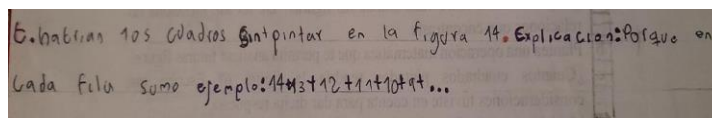 t.habrian 105 cuadros sint pintar en la figura 14. Explicacion: Porque en
cada fila sumo ejemplo: 14+13+12+11+10+9+...